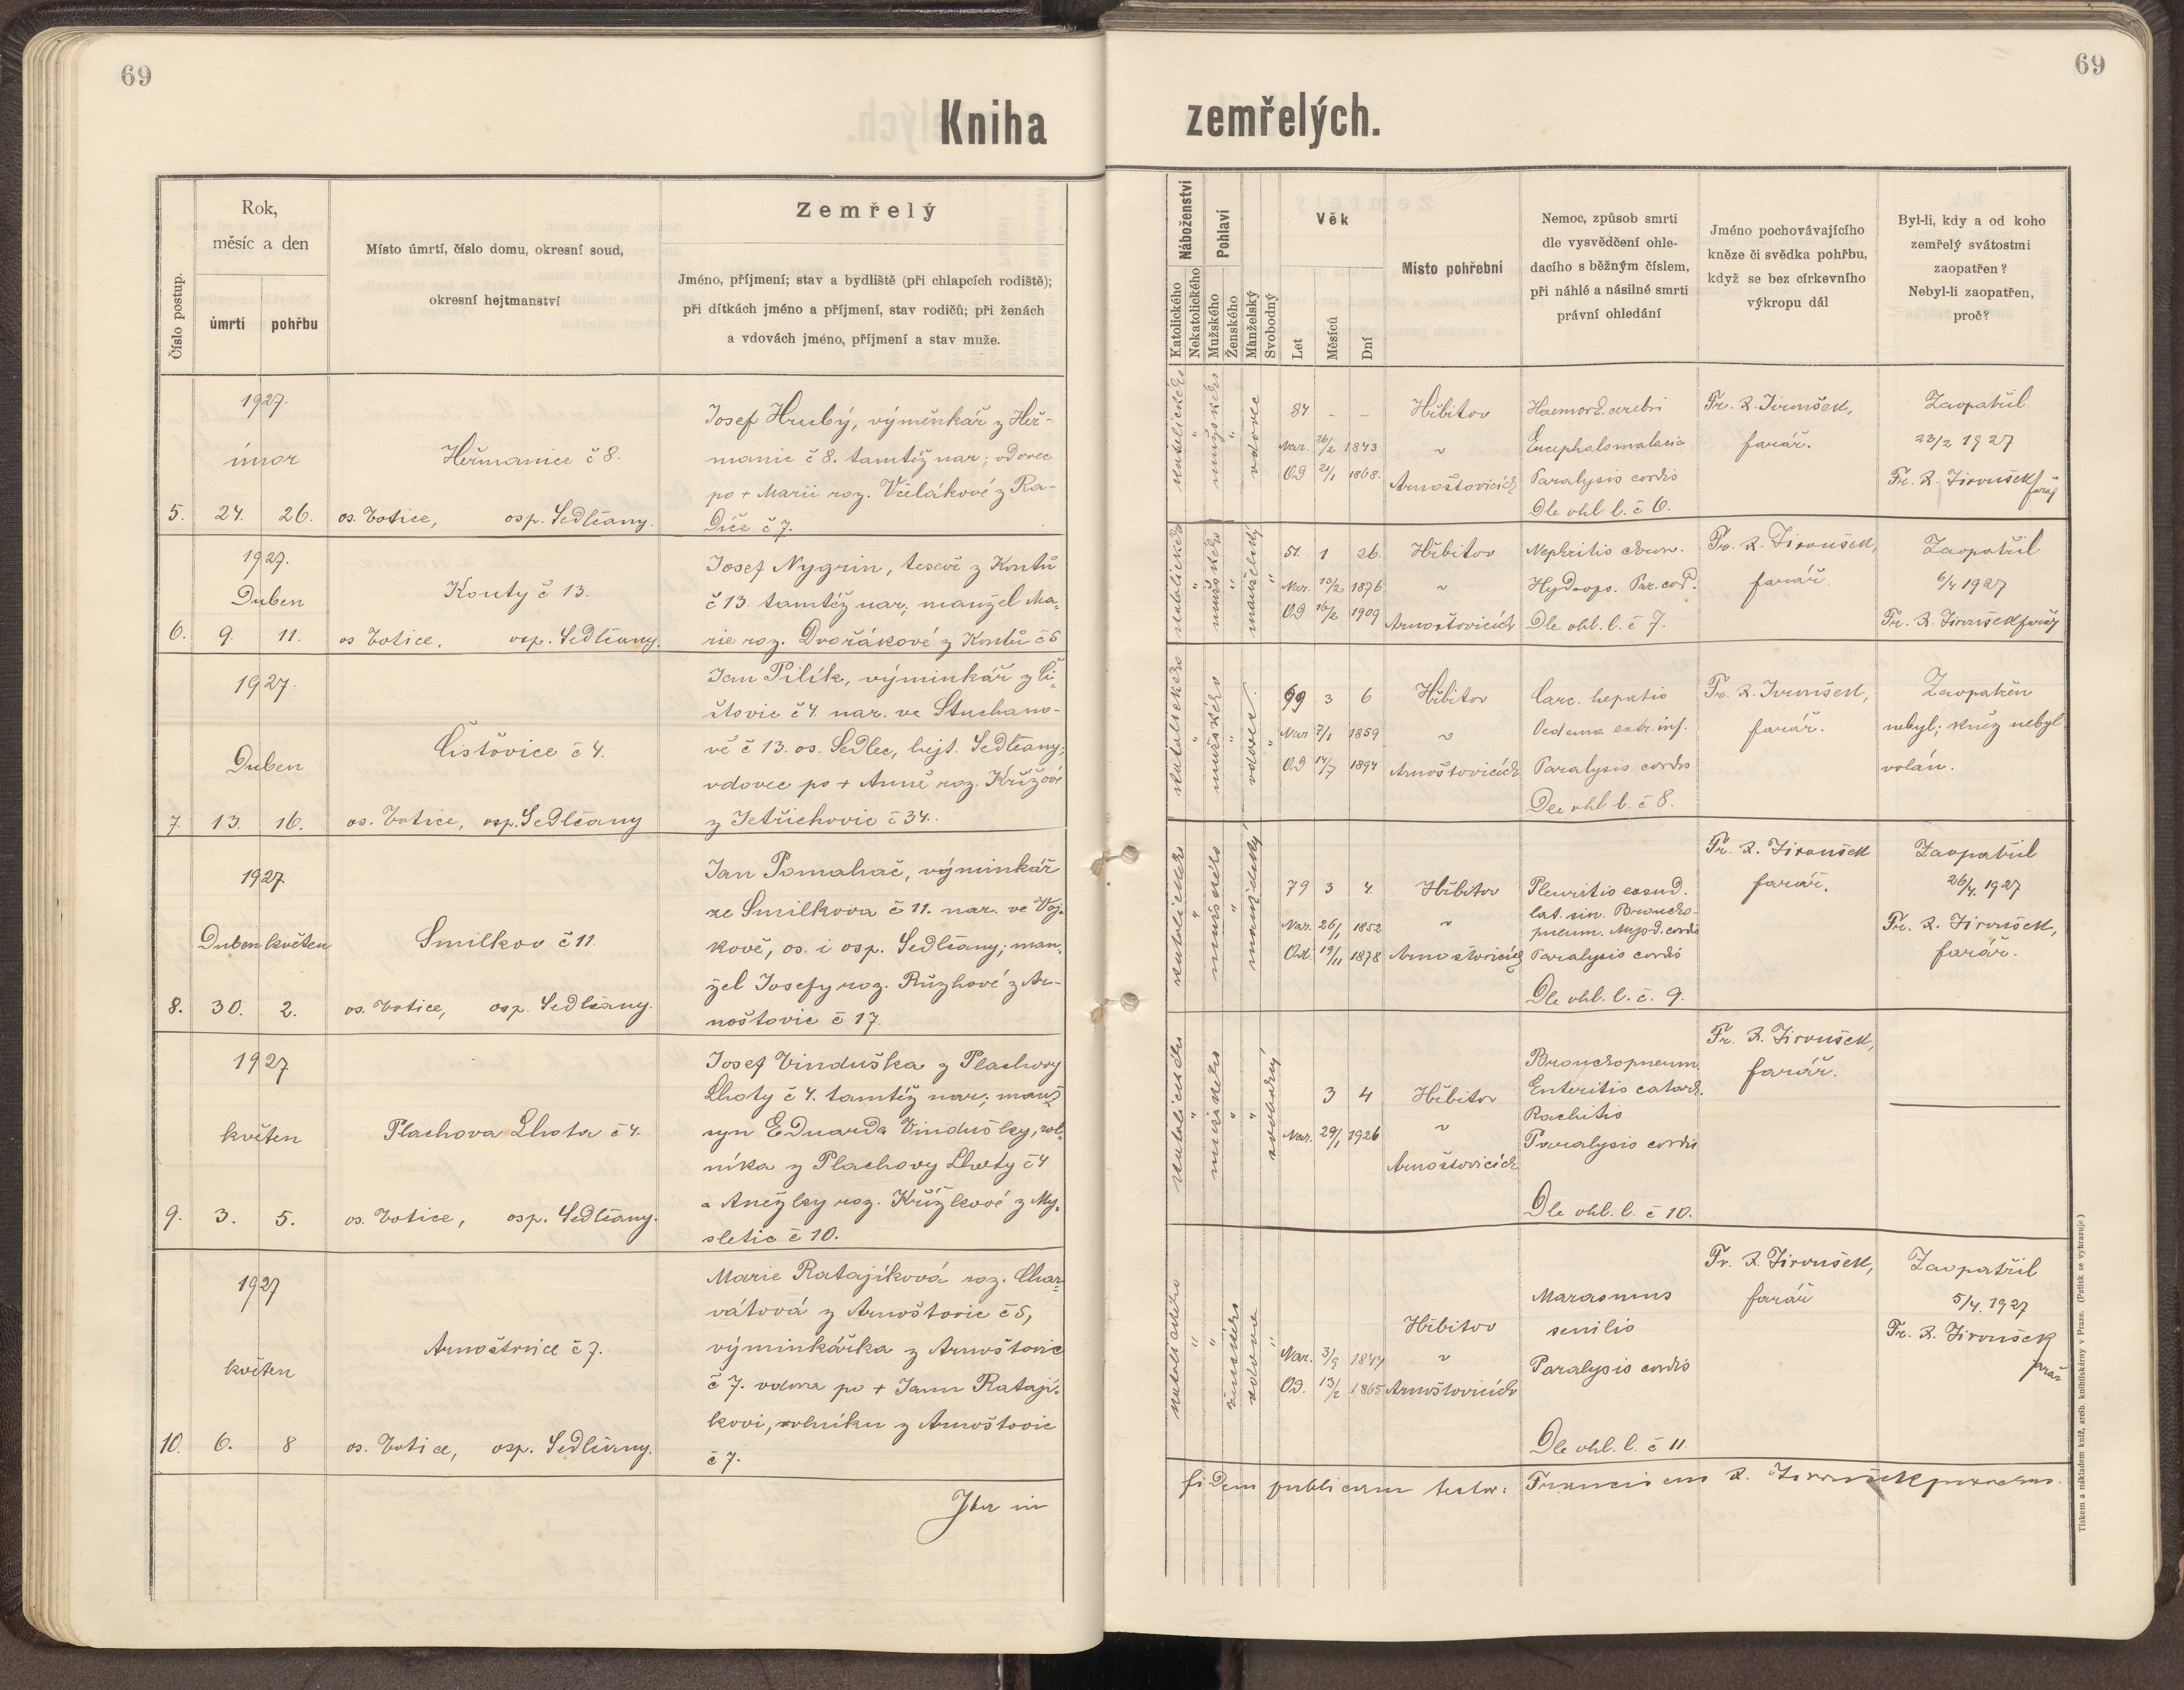 69
69
Kniha zemřelých.
Číslo postup.
Rok,
měsíc a den
úmrtí
pohřbu
Místo úmrtí, číslo domu, okresní soud,
okresní hejtmanství
Zemřelý
Jméno, příjmení; stav a bydliště (při chlapcích rodiště);
při dítkách jméno a příjmení, stav rodičů; při ženách
a vdovách jméno, příjmení a stav muže.
Náboženství
Katolického
Nekatolického
Pohlaví
Mužského
Ženského
Manželský
Svobodný
Věk
Let
Měsíců
Dní
Místo pohřební
Nemoc, způsob smrti
dle vysvědčení ohle-
dacího s běžným číslem,
při náhlé a násilné smrti
právní ohledání
Jméno pochovávajícího
kněze či svědka pohřbu,
když se bez církevního
výkropu dál
Byl-li, kdy a od koho
zemřelý svátostmi
zaopatřen?
Nebyl-li zaopatřen,
proč?
5.
1927.
únor
24. 26.
Heřmanice č 8.
os. Votice, osp. Sedlčany.
Josef Hrubý, výměnkář z Heř-
manic č 8. tamtéž nar; vdovec
po + Marii roz. Včelákové z Ra-
Diče č 7.
katolického
mužského
vdovec
84 - -
Nar. 26/2 1843
OD 21/1 1868.
Hřbitov
v
Arnoštovicích
Haemorh. cerebri
Encephalomalacia
Paralysis cordis
Dle ohl l. č 6.
Fr. R. Jiroušek,
farář.
Zaopatřil
23/2 1927
Fr. R. Jiroušek farář
6.
1927.
Duben
9. 11.
Kouty č 13.
os Votice. osp. Sedlčany.
Josef Nygrin, tesař z Koutů
č 13. tamtéž nar; manžel Ma-
rie roz. Dvořákové z Koutů č 5
katolického
mužského
manželský
51. 1 26.
Nar. 13/2 1876
OD 16/2 1909
Hřbitov
v
Arnoštovicích
Nephritis chron.
Hydrops. Par. cord.
Dle ohl. l. č 7.
Fr. R. Jiroušek,
farář.
Zaopatřil
6/4 1927
Fr. R. Jiroušek farář
7.
1927.
Duben
13. 16.
Čistovice č 4.
os. Votice, osp. Sedlčany
Jan Pilík, výminkář z Či-
stovic č 4. nar. ve Stuchano-
vě č 13. os. Sedlec, hejt. Sedlčany;
vdovec po + Anně roz. Křížové
z Jetřichovic č 34.
katolického
mužského
vdovec
3 6
Nar 7/1 1859
OD 14/7 1894
Hřbitov
v
Arnoštovicích
Carc. hepatis
Oedema extr. inf.
Paralysis cordis
Dle ohl l. č 8.
Fr. R. Jiroušek,
farář.
Zaopatřen
nebyl; kněz nebyl
volán.
8.
1927
Duben květen
30. 2.
Smilkov č 11.
os. Votice, osp. Sedlčany.
Jan Pomahač, výminkář
ze Smilkova č 11. nar. ve Voj-
kově, os. i osp. Sedlčany; man-
žel Josefy roz. Růzhové z Ar-
noštovic č 17.
katolického
mužského
manželský
79 3 4
Nar. 26/1 1852
Od. 19/11 1878
Hřbitov
v
Arnoštovicích
Pleuritis exsud.
lat. sin. Broncho-
pneum. Myod. cordis
Paralysis cordis
Dle ohl. l. č. 9.
Fr. R. Jiroušek
farář.
Zaopatřil
26/4. 1927
Fr. R. Jiroušek,
farář.
9.
1927
květen
3. 5.
Plachova Lhota č 4.
os. Votice, osp. Sedlčany.
Josef Vinduška z Plachovy
Lhoty č 4. tamtéž nar; manž
syn Eduarda Vindušky, rol-
níka z Plachovy Lhoty č 4
a Anežky roz. Křížkové z My-
sletic č 10.
katolického
mužského
svobodný
3 4
Nar. 29/1 1926
Hřbitov
v
Arnoštovicích
Bronchopneum.
Enteritis catarh.
Rachitis
Paralysis cordis
Dle ohl. l. č 10.
Fr. R. Jiroušek,
farář.
10.
1927
květen
6. 8
Arnoštovice č 7.
os. Votice, osp. Sedlčany.
Marie Ratajíková roz. Char-
vátová z Arnoštovic č 5,
výminkářka z Arnoštovic
č 7. vdova po + Janu Ratají-
kovi, rolníku z Arnoštovic
č 7.
katolického
ženského
vdova
Nar. 3/9 1844
Od. 13/2 1865
Hřbitov
v
Arnoštovicích
Marasmus
senilis
Paralysis cordis
Dle ohl. l. č 11.
Fr. R. Jiroušek,
farář
Zaopatřil
5/4. 1927
Fr. R. Jiroušek
farář
Ita in fidem publicam testor: Franciscus R. Jiroušek parochus.
Tiskem a nákladem kníž. arcib. knihtiskárny v Praze. (Patisk se vyhrazuje.)